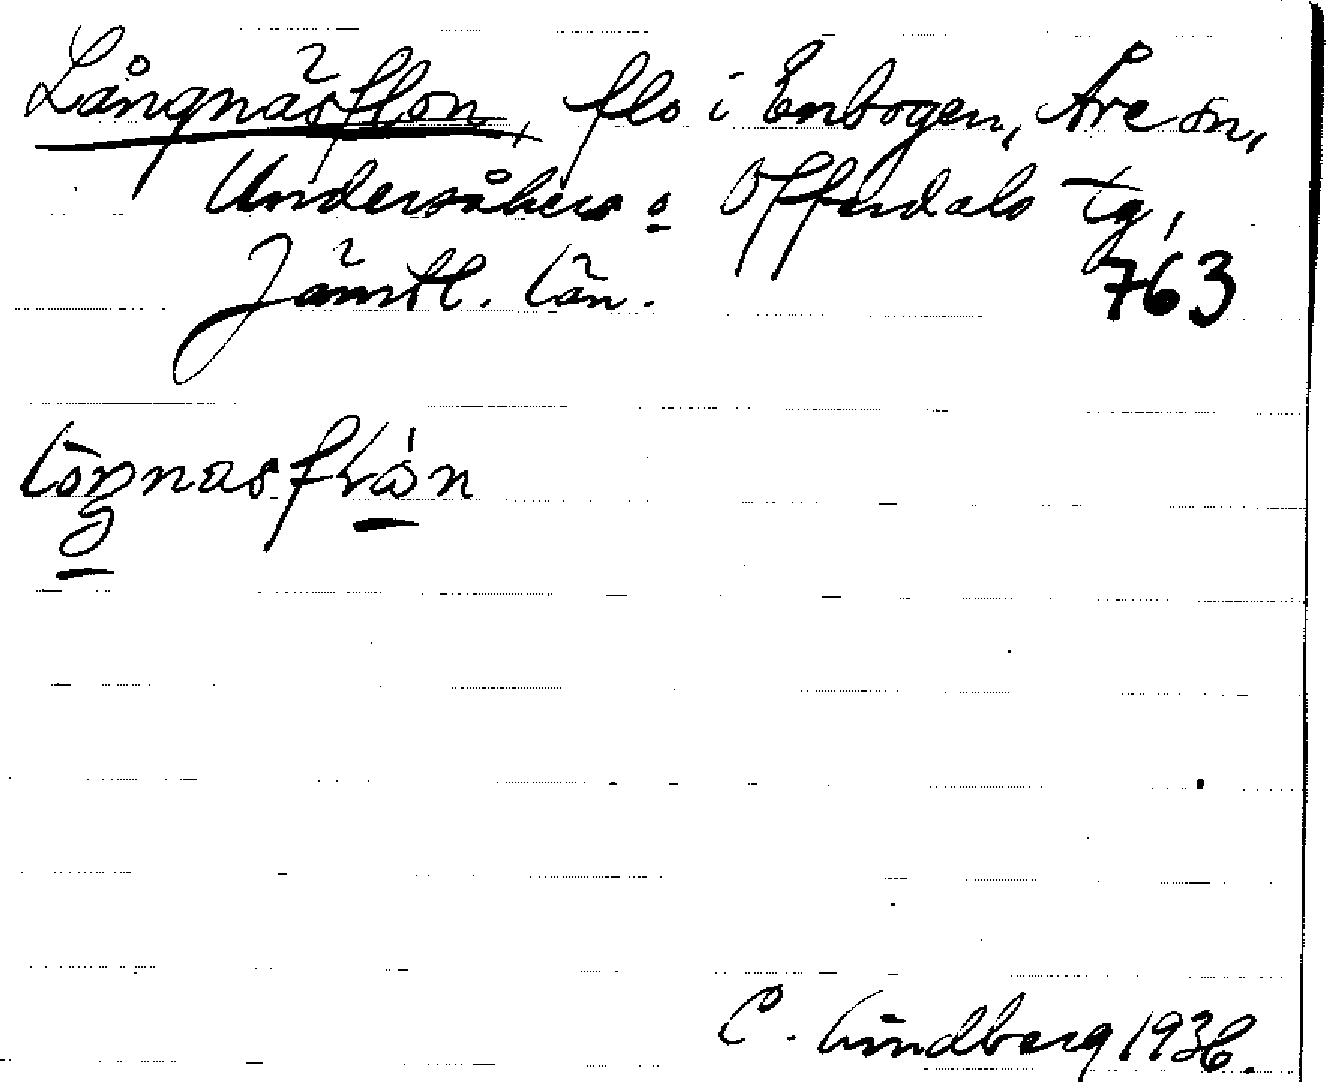 Långnäsflon, flo i Enbogen, Åre sn,
Undersåkers o Offerdals tg,
Jämtl. län.
763
LòŋnasfLån
C. Lindberg 1936.